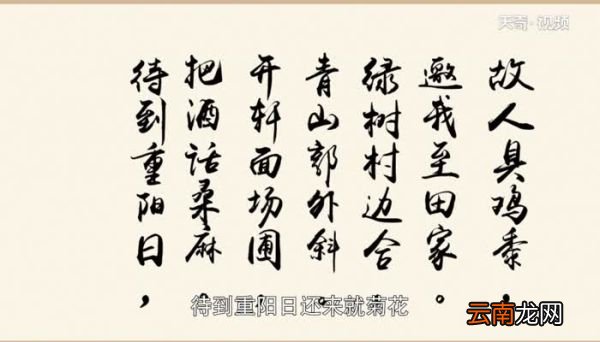 天奇·视频
故人具鸡黍，
邀我至田家。
绿树村边合，
青山郭外斜。
开轩面场圃，
把酒话桑麻。
待到重阳日，
待到重阳日还来就菊花
云南龙网